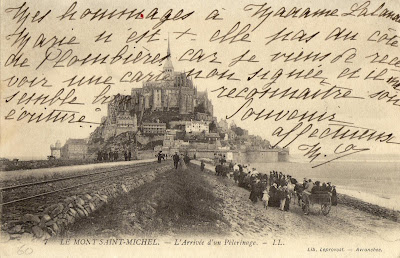 Mes hommages à Madame Lalanne
Marie n'est-elle pas du côté
de Plombières car je viens de rece
voir une carte non signée et il me
semble bien reconnaître son
écriture Souvenir
affectueux
7 LE MONT SAINT-MICHEL. — L'Arrivée d'un Pèlerinage. — LL.
Lib. Leprovost. - Avranches.
60